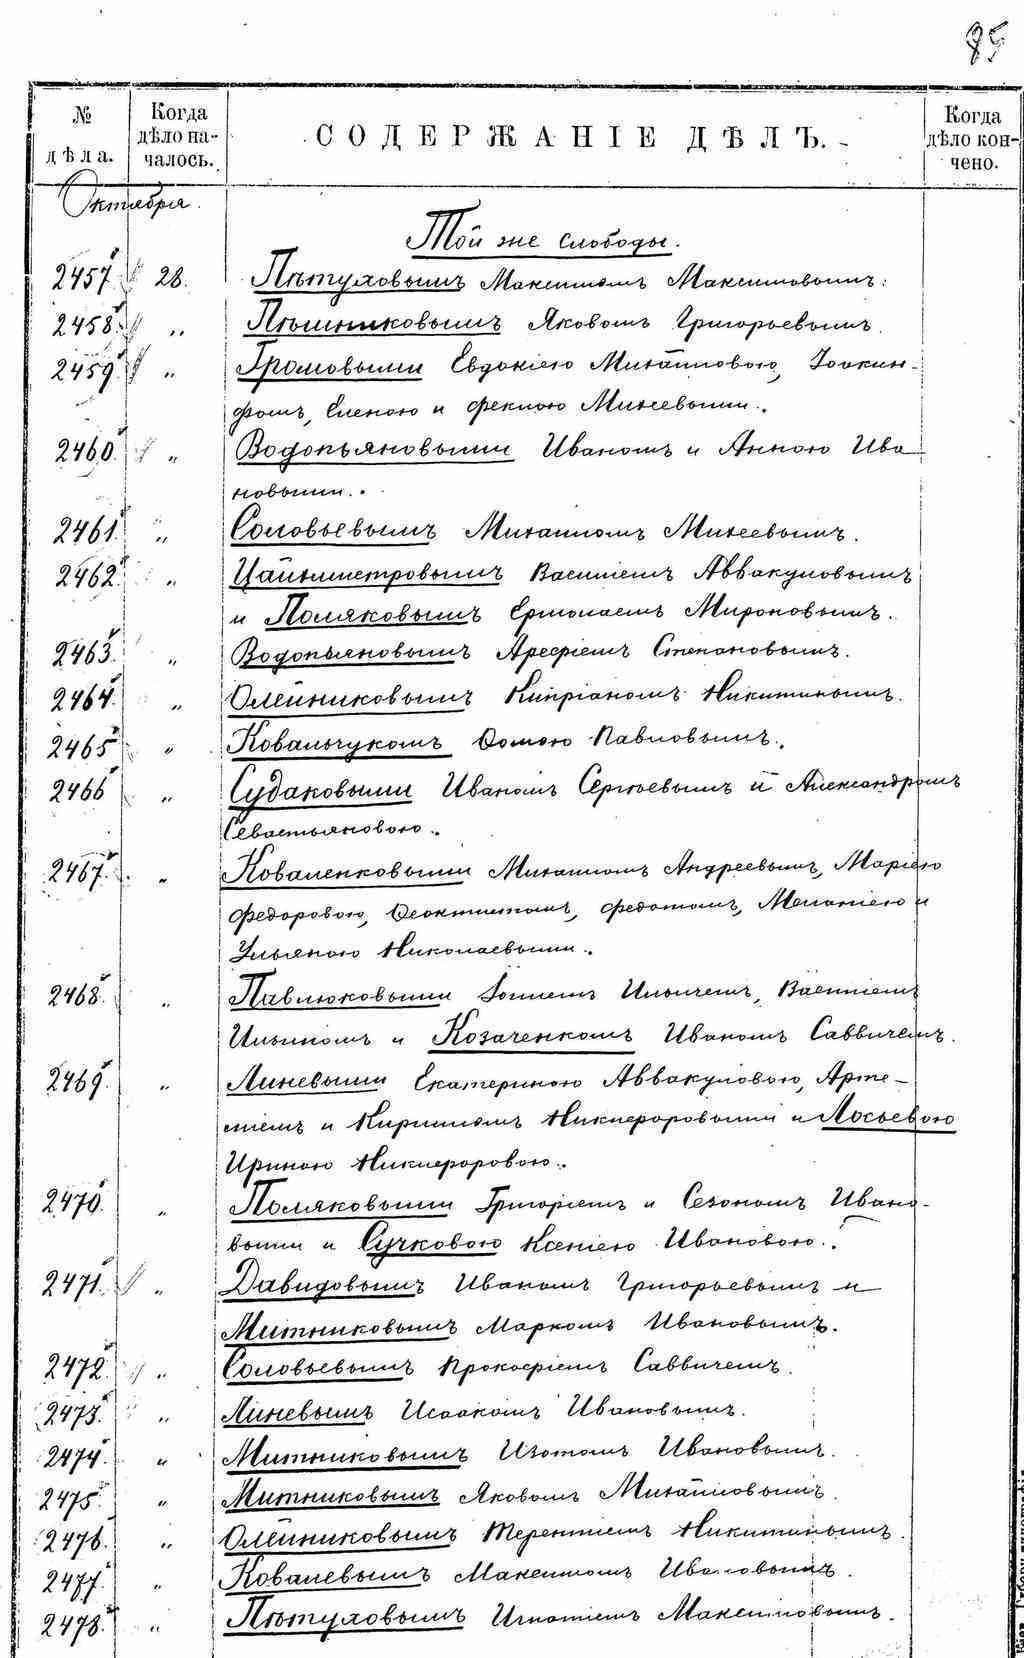 85
№ дѣла. Когда дѣло на-чалось. СОДЕРЖАНІЕ ДѢЛЪ. Когда дѣло кон-чено.
Октября.
Той же слободы.
2457. 28. Пѣтуховымъ Максимомъ Максимовымъ.
2458. " Пѣшниковымъ Яковомъ Григорьевымъ.
2459. " Громовыми Евдокіею Михайловою, Іоакин-
фомъ, Еленою и Феклою Михеевыми.
2460. " Водопьяновыми Иваномъ и Анною Ива
новыми.
2461. " Соловьевымъ Михаиломъ Михеевымъ.
2462. " Цайхмистровымъ Василіемъ Аввакумовымъ
и Поляковымъ Ермолаемъ Мироновымъ.
2463. " Водопьяновымъ Арефіемъ Степановымъ.
2464. " Олейниковымъ Кипріаномъ Никитинымъ.
2465 " Ковальчукомъ Ѳомою Павловымъ.
2466 " Судаковыми Иваномъ Сергѣевымъ и Александромъ
Севастьяновою.
2467. " Коваленковыми Михаиломъ Андреевымъ, Маріею
Федоровою, Ѳеоктистомъ, Федотомъ, Меланіею и
Ульяною Николаевыми.
2468. " Павлюковыми Іоилемъ Ильичемъ, Василіемъ
Ильичомъ и Козаченкомъ Иваномъ Саввичемъ.
2469. " Линевыми Екатериною Аввакумовою, Арте-
міемъ и Кириломъ Никифоровыми и Лосьевою
Ириною Никифоровою.
2470. " Поляковыми Григоріемъ и Сезономъ Ивано-
выми и Сучковою Ксеніею Ивановою.
2471. " Давидовымъ Иваномъ Григорьевымъ и
Митниковымъ Маркомъ Ивановымъ.
2472. " Соловьевымъ Прокофіемъ Саввичемъ.
2473. " Линевымъ Исаакомъ Ивановымъ.
2474. " Митниковымъ Изотомъ Ивановымъ.
2475. " Митниковымъ Яковомъ Михайловымъ.
2476. " Олейниковымъ Терентіемъ Никитинымъ.
2477. " Ковалевымъ Максимомъ Ивановымъ.
2478. " Пѣтуховымъ Игнатіемъ Максимовымъ.